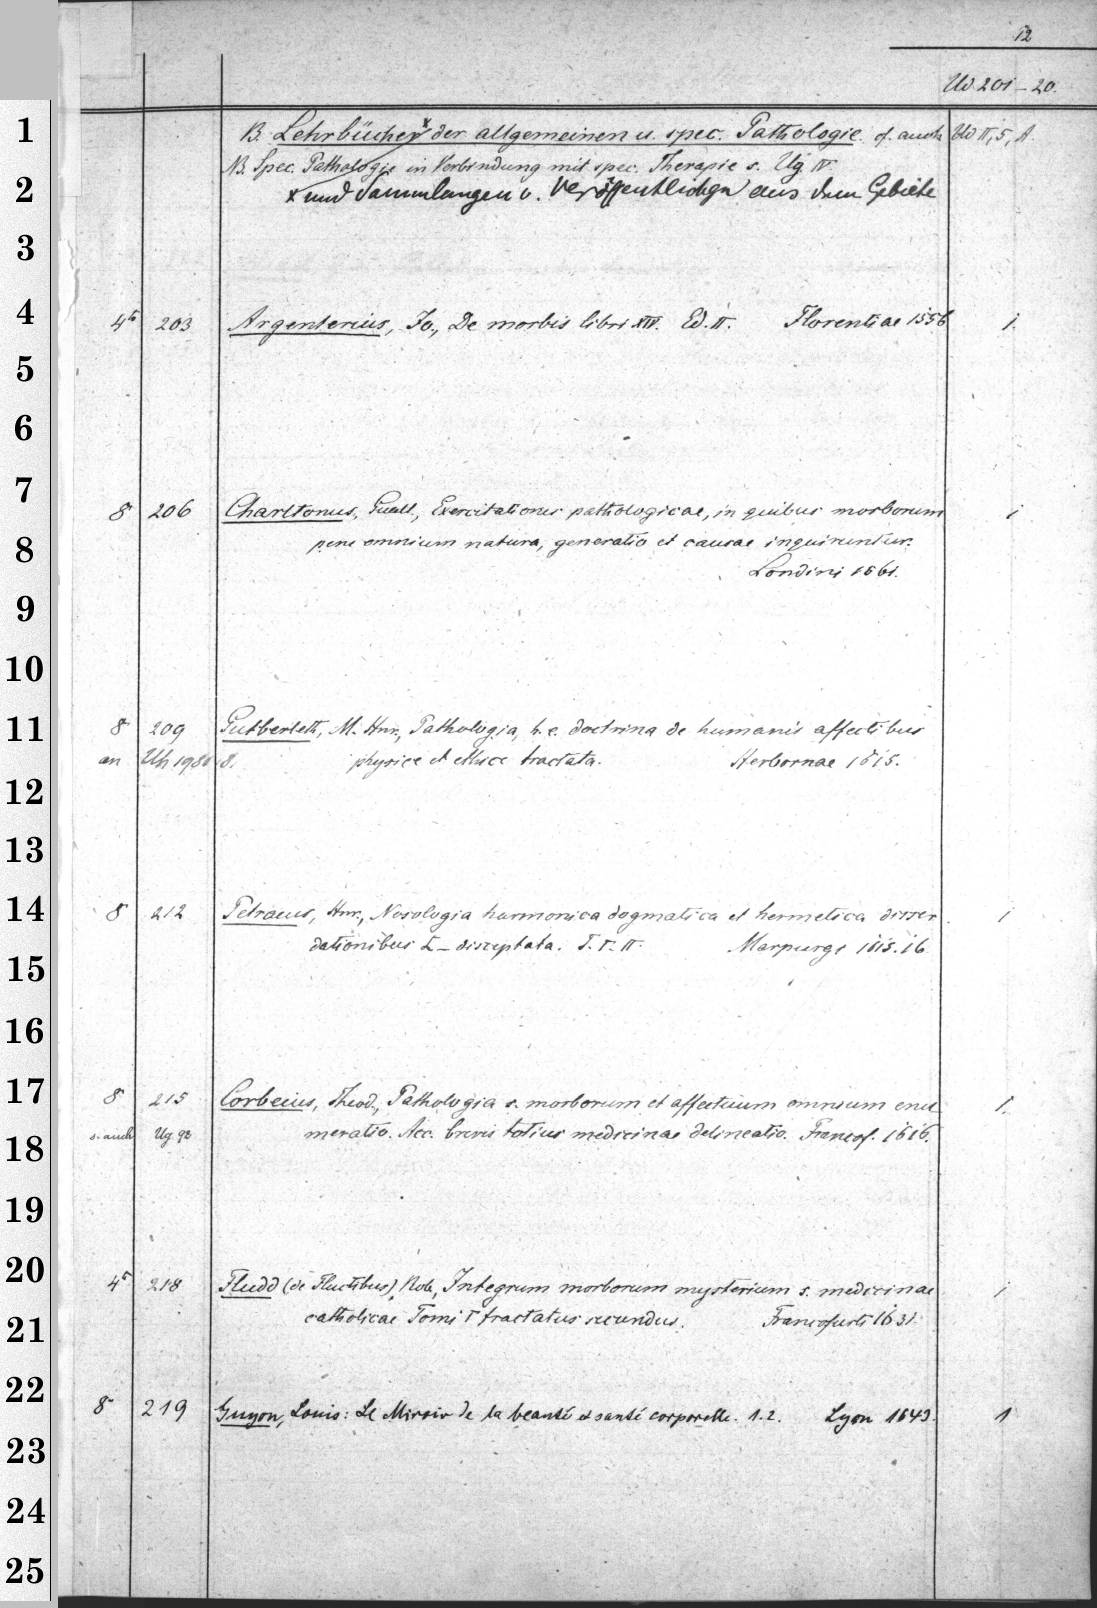 12
Ud 201-20.
B. Lehrbücher x der allgemeinen u. spec. Pathologie. cf. auch Ud II, 5, A.
NB. Spec. Pathologie in Verbindung mit spec. Therapie s. Ug IV
x und Sammlungen v. Veröffentlichgn aus dem Gebiete
4to 203 Argenterius, Jo., De morbis libri XIV. Ed. II. Florentiae 1556 1.
8 206 Charltonus, Gualt., Exercitationes pathologicae, in quibus morborum 1
pene omnium natura, generatio et causae inquiruntur.
Londini 1661.
8 209 Gutberleth, M. Hnr., Pathologia, h. e. doctrina de humanis affectibus
an Uh 1980 8. physice et ethice tractata. Herbornae 1615.
8 212 Petraeus, Hnr., Nosologia harmonica dogmatica et hermetica disser 1
dationibus L - disceptata. T. I. II. Marpurgi 1615. 16
8 215 Corbeius, Theod., Pathologia s. morborum et affectuum omnium enu 1.
s. auch Ug 92 meratio. Acc. brevis totius medicinae delineatio. Francof. 1616.
4to 218 Fludd (de Fluctibus), Rob., Integrum morborum mysterium s. medicinae 1
catholicae Tomi I tractatus secundus. Francofurti 1631.
8 219 Guyon, Louis: Le Miroir de la beauté et santé corporelle. 1.2. Lyon 1643. 1
1
2
3
4
5
6
7
8
9
10
11
12
13
14
15
16
17
18
19
20
21
22
23
24
25